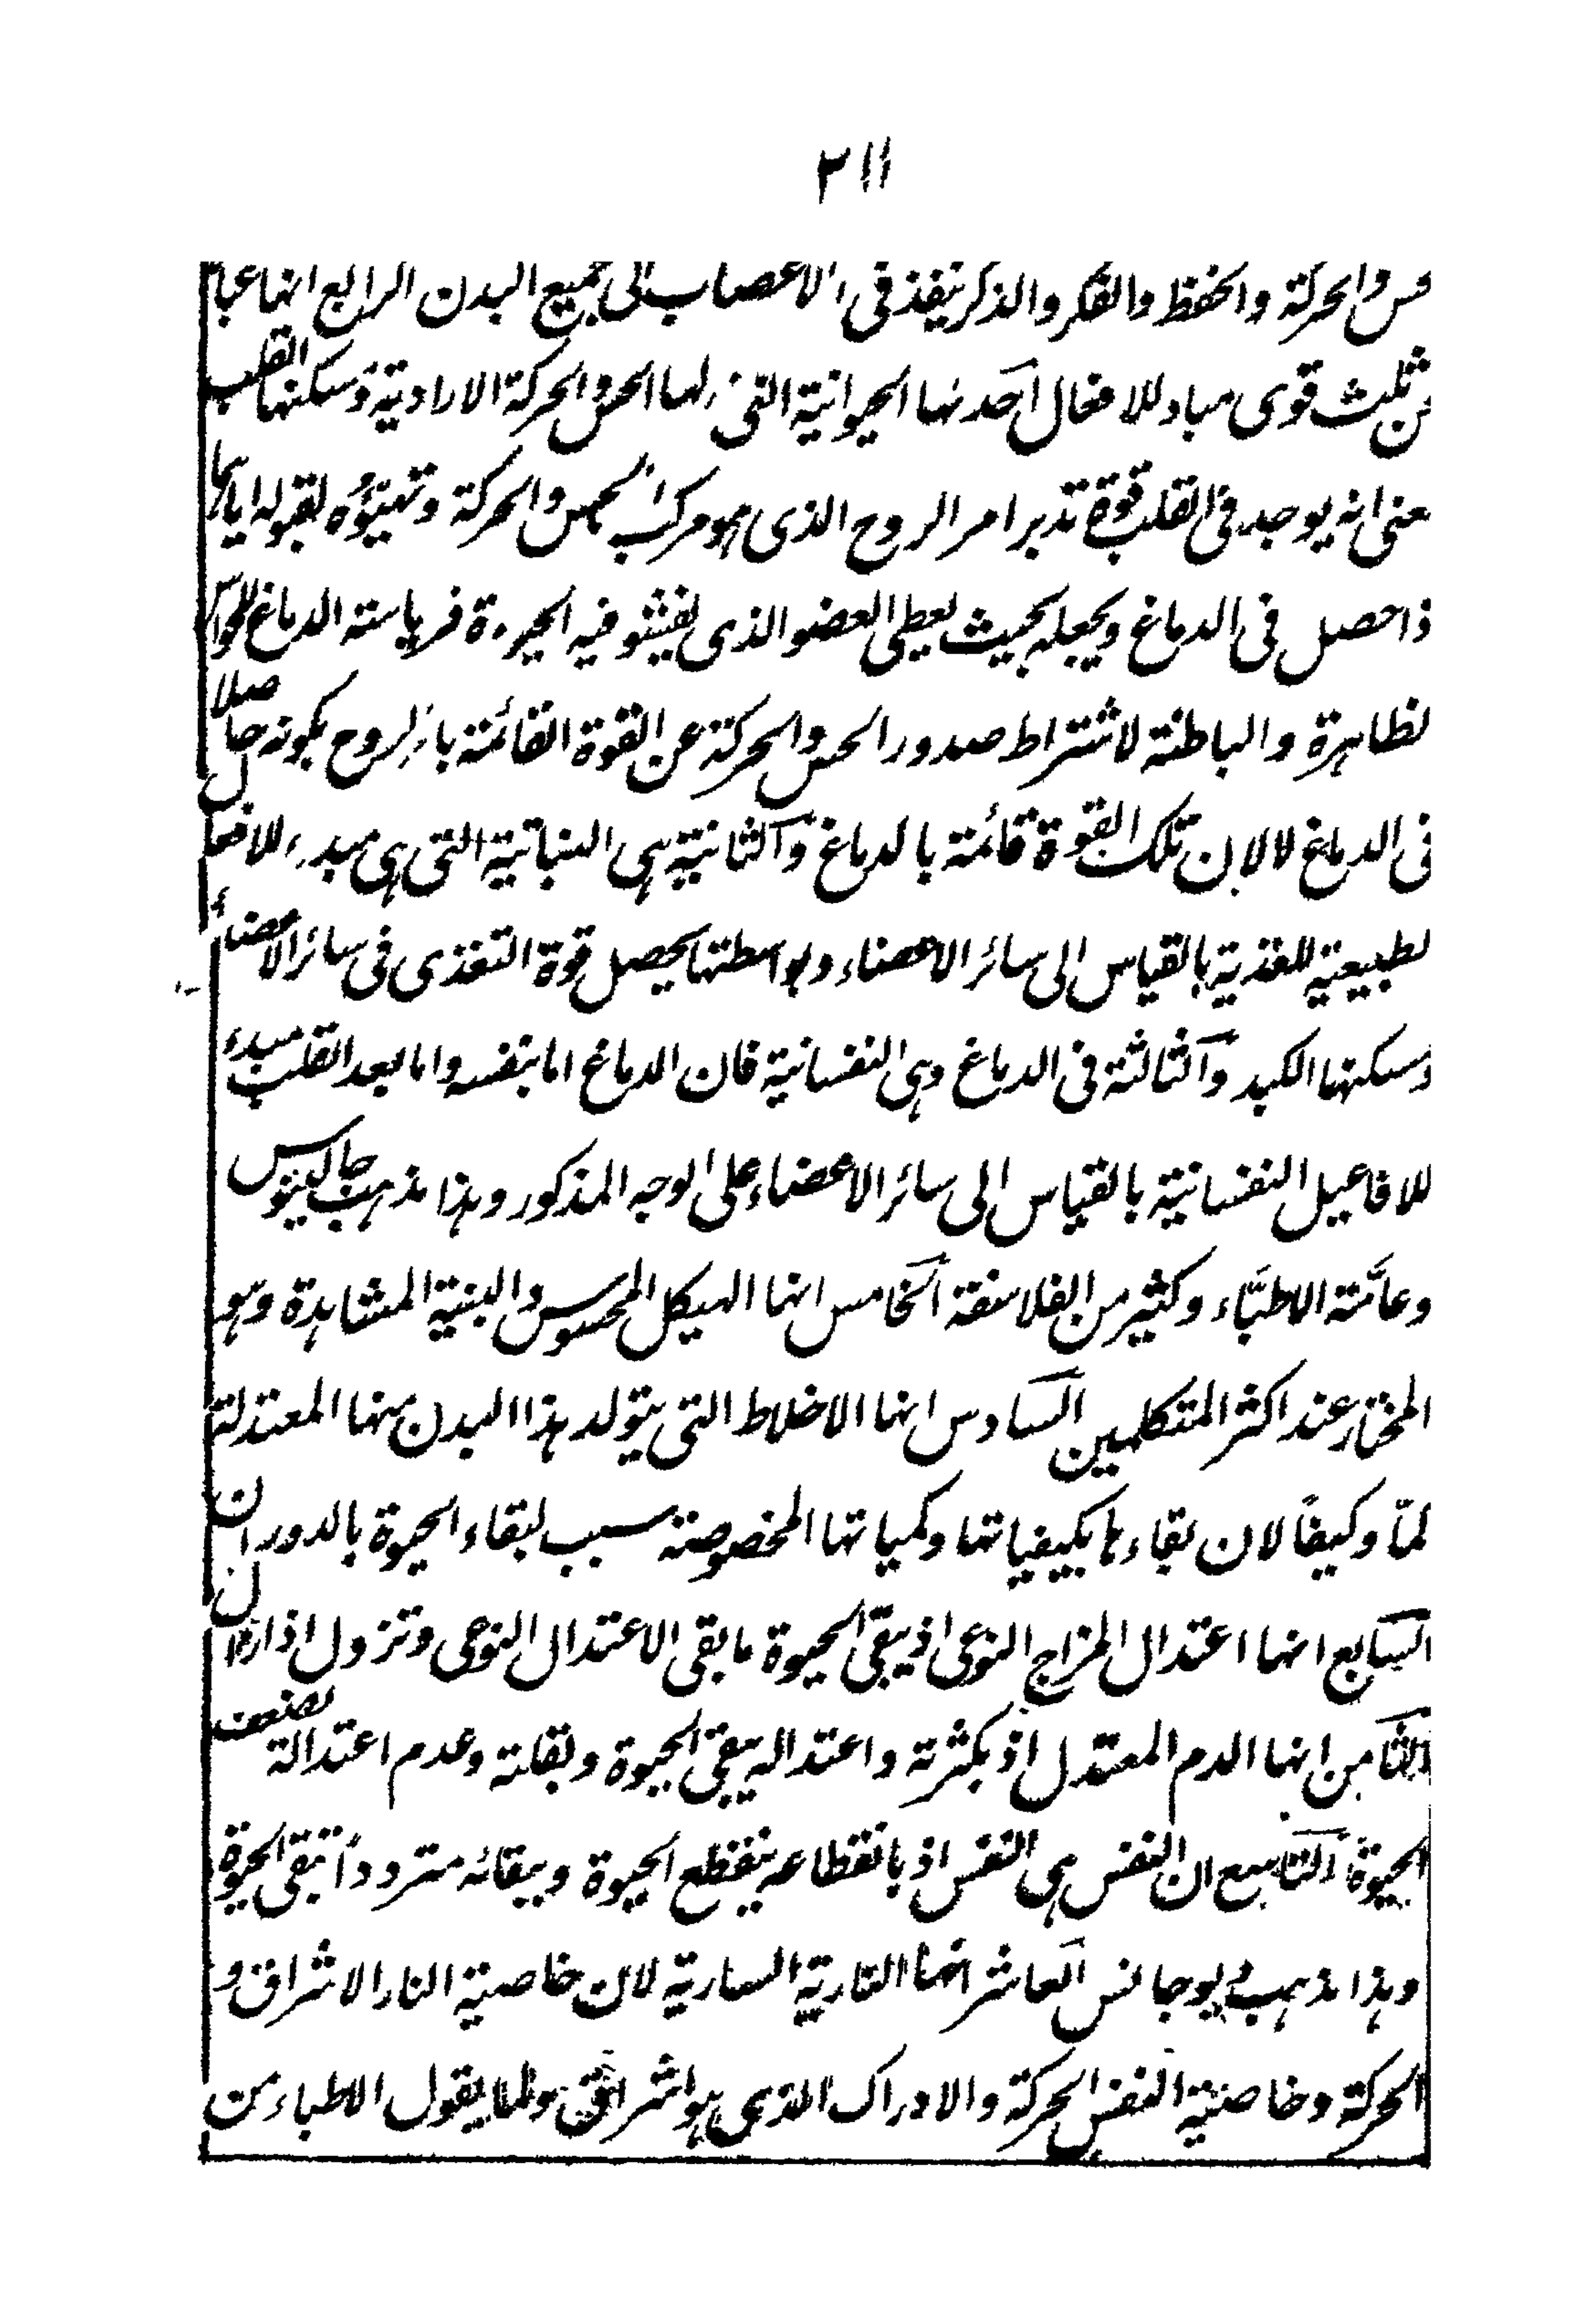 ٢١١
حس والحركة والحفظ والفكر والذكر ينفذ فى الاعصاب الى جميع البدن الرابع انها عبا
عن ثلث قوى مباد للافعال احدنها الحيوانية التى لها الحس والحركة الارادية ومسكنها القلب
معنى انه يوجد فى القلب قوة تدبر امر الروح الذى هو مركب الحس والحركة وتهيؤه لقبوله اياهما
ذا حصل فى الدماغ ويجعله بحيث يعطى العضو الذى يفشو فيه الحيوة فرياسته الدماغ للحواس
لظاهرة والباطنة لاشتراط صدور الحس والحركة عن القوة القائمة بالروح بكونه حاصلا
فى الدماغ لا لان تلك القوة قائمة بالدماغ والثانية هى النباتية التى هى مبدء للافعال
لطبيعية للغذية بالقياس الى سائر الاعضاء وبواسطتها يحصل قوة التغذى فى سائر الاعضاء
ومسكنها الكبد والثالثة فى الدماغ وهى النفسانية فان الدماغ اما بنفسه واما بعد القلب مبدء
للافاعيل النفسانية بالقياس الى سائر الاعضاء على الوجه المذكور وهذا مذهب جالينوس
وعامة الاطباء وكثير من الفلاسفة الخامس انها الهيكل المحسوس والبنية المشاهدة وهو
المختار عند اكثر المتكلمين السادس انها الاخلاط التى يتولد هذا البدن منها المعتدلة
لمّا وكيفًا لان بقاءها بكيفياتها وكمياتها المخصوصة سبب لبقاء الحيوة بالدوران
السابع انها اعتدال المزاج النوعى اذ يبقى الحيوة ما بقى الاعتدال النوعى وتزول اذا زال
الثامن انها الدم المعتدل اذ بكثرته واعتداله يبقى الحيوة وبقلته وعدم اعتدالة تضعف
الحيوة التاسع ان النفس هى النفس اذ بانقطاعه ينقطع الحيوة وببقائه مترودًا تبقى الحيوة
وهذا مذهب ديوجانس العاشر انها النارية السارية لان خاصية النار الاشراق و
الحركة وخاصية النفس الحركة والادراك الذى هو اشراق ولما يقول الاطباء من